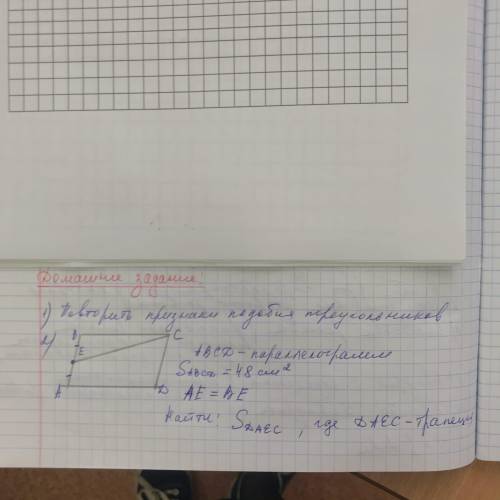 Домашнее задание:
1) Повторить признаки подобия треугольников
2) B C
E
ABCD - параллелограмм
S_ABCD = 48 см²
A D AE = BE
Найти: S_DAEC, где DAEC - трапеция